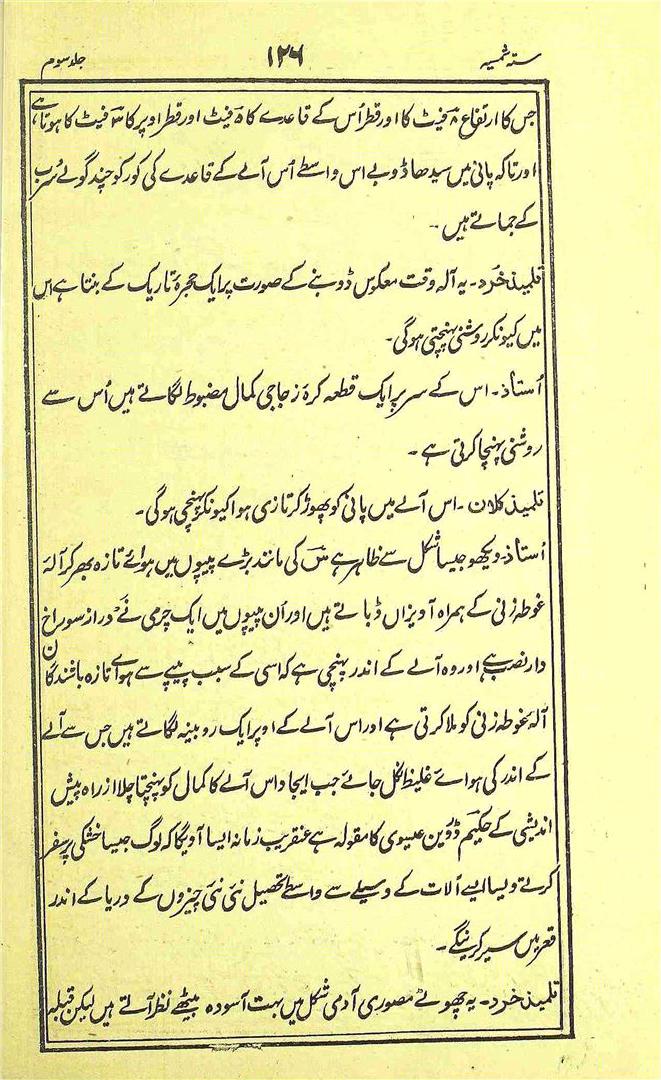 ستہ شمسیہ ۱۲۶ جلد سوم
جس کا ارتفاع ۸ فیٹ کا اور قطر اُس کے قاعدے کا ۵ فیٹ اور قطر اوپر کا ۳ فیٹ کا ہوتا ہے
اور تاکہ پانی میں سیدھا ڈوبے اس واسطے اُس آلے کے قاعدے کی کور کو چند گولے سُرب
کے جماتے ہیں ۔
تلمیذ خُرد ۔ یہ آلہ وقت معکوس ڈوبنے کے صورت پر ایک حجرۂ تاریک کے بنتا ہے اس
میں کیونکر روشنی پہنچتی ہوگی ۔
اُستاذ ۔ اس کے سر پر ایک قطعہ کرۂ زجاجی کمال مضبوط لگاتے ہیں اُس سے
روشنی پہنچا کرتی ہے ۔
تلمیذ کلان ۔ اس آلے میں پانی کو پھوڑ کر تازی ہوا کیونکر پہنچی ہوگی ۔
اُستاذ ۔ دیکھو جیسا شکل سے ظاہر ہے کی مانند بڑے پیپوں میں ہوائے تازہ بھر کر آلۂ
غوطہ زنی کے ہمراہ آویزاں ڈباتے ہیں اور اُن پیپوں میں ایک چرمی نَے دراز سوراخ
دار نصب ہے اور وہ آلے کے اندر پہنچی ہے کہ اسی کے سبب پیپے سے ہوائے تازہ باشندگان
آلۂ غوطہ زنی کو ملا کرتی ہے اور اس آلے کے اوپر ایک روبینہ لگاتے ہیں جس سے آلے
کے اندر کی ہوائے غلیظ نکل جائے جب ایجاد اس آلے کا کمال کو پہنچتا چلا از راہ پیش
اندیشی کے حکیم ڈوین عیسوی کا مقولہ ہے عنقریب زمانہ ایسا آویگا کہ لوگ جیسا خشکی پر سفر
کرتے ویسا ایسے آلات کے وسیلے سے واسطے تحصیل نئی نئی چیزوں کے دریا کے اندر
قعر میں سیر کرینگے ۔
تلمیذ خرد ۔ یہ چھوٹے مصوری آدمی شکل میں بہت آسودہ بیٹھے نظر آتے ہیں لیکن قبلہ